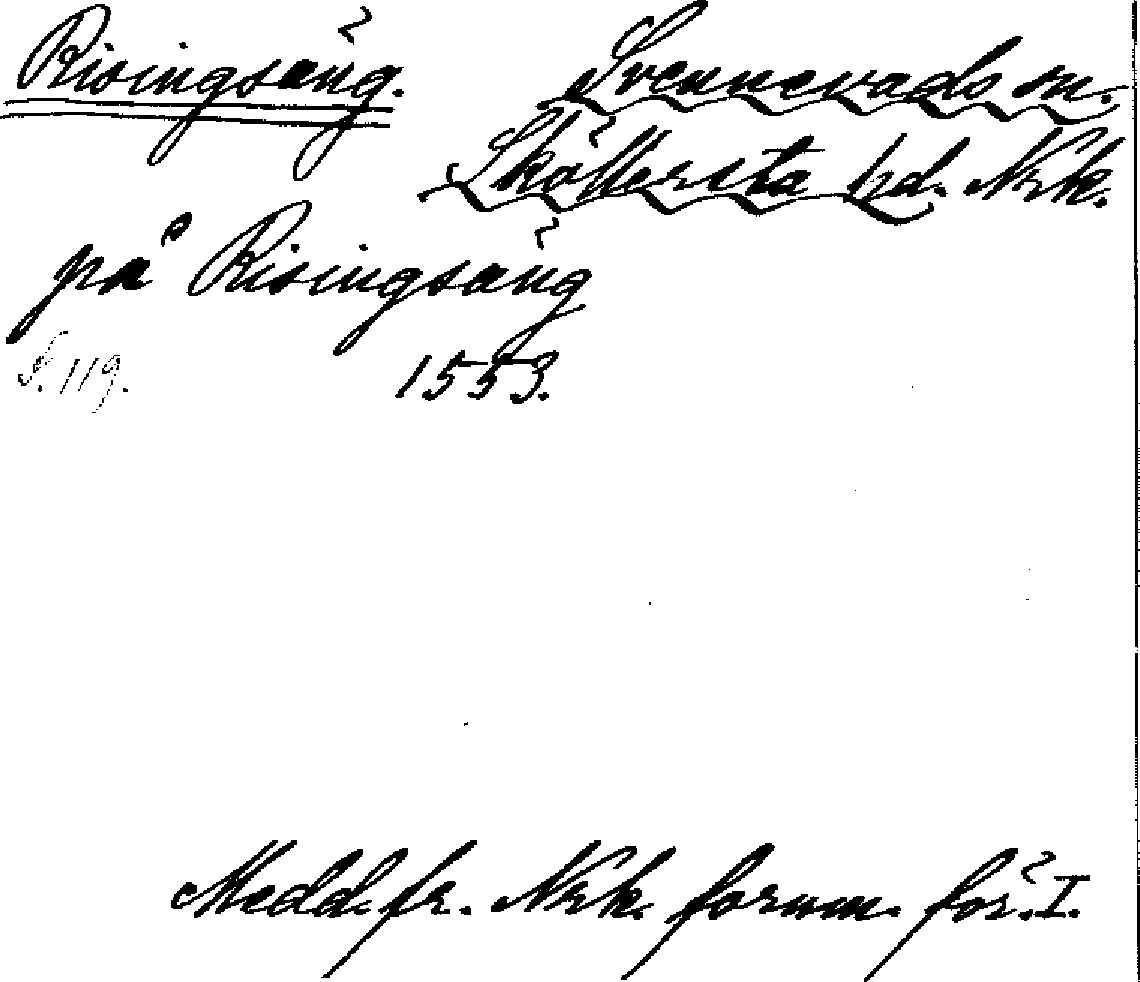 Risingsäng. Svennevads sn.
Sköllersta hd. Nrk.
på Risingsäng
S. 119. 1553.
Medd. fr. Nrk. fornm. för. I.